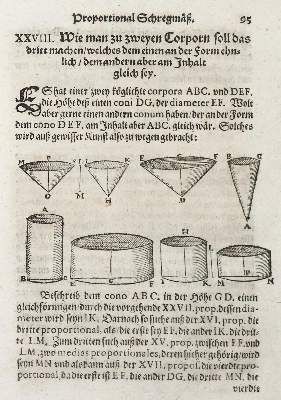 Proportional Schregmäß. 95
XXVIII. Wie man zu zweyen Corporn soll das
dritt machen / welches dem einen an der Form ehn-
lich / dem andern aber am Inhalt
gleich sey.
ES hat einer zwey köglichte corpora ABC. vnd DEF.
die Höhe deß einen coni DG, der diameter EF. Wolt
aber gerne einen andern conum haben / der an der Form
dem cono DEF, am Inhalt aber ABC. gleich wär. Solches
wird auß gewisser Kunst also zu wegen gebracht:
Beschreib dem cono ABC. in der Höhe GD, einen
gleichförmigen durch die vorgehende XXVII. prop. dessen dia-
meter wird seyn IK. Darnach so suche auß der XVI. prop. die
dritte proportional, als die erste sey EF, die ander IK, die drit-
te LM. Zum dritten such auß der XV. prop. zwischen EF. vnd
LM, zwo medias proportionales, deren die erste sey
seyn MN vnd als dann auß der XVII. propos. die vierdte pro-
portional, da die erst ist EF, die ander DG, die dritte MN, die
vierdte